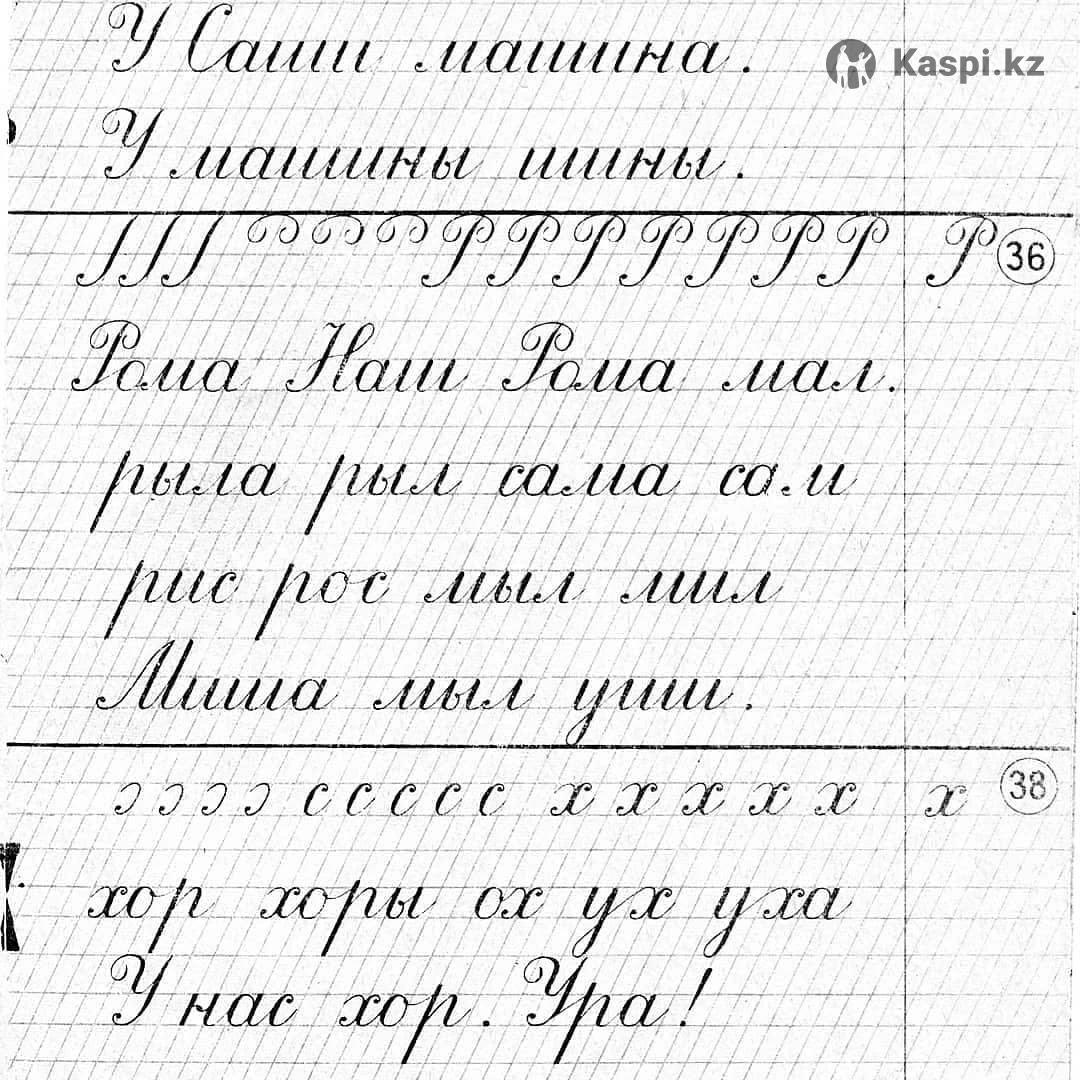 У Саши машина.
Kaspi.kz
У машины шины.
Р Р Р Р Р Р Р Р
36
Рома Наш Рома мал.
рыла рыл сама сам
рис рос мыл мил
Миша мыл уши.
с с с с с х х х х х х
38
хор хоры ох ух уха
У нас хор. Ура!